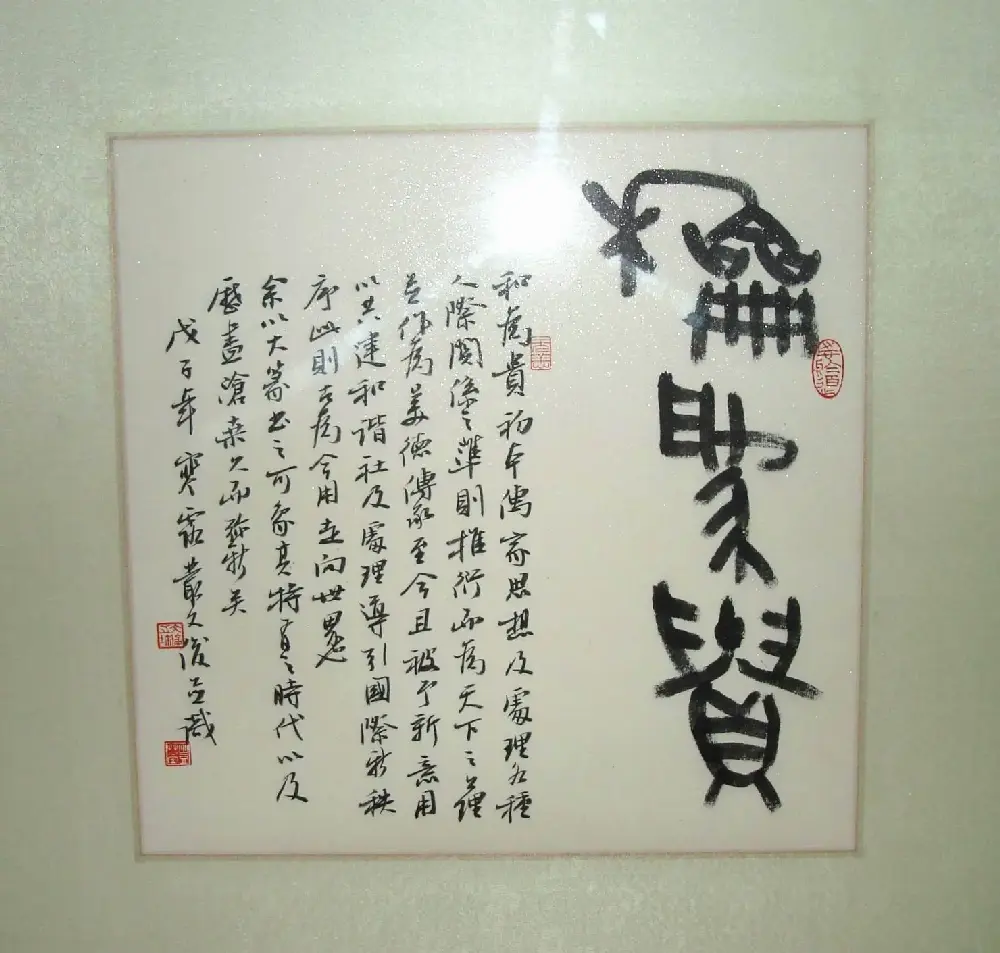 龢為貴
和為貴初本儒家思想及處理各種
人際關係之準則推衍而為天下之
並作為美德傳承至今且被予新意用
以共建和谐社及處理導引國際新秩
序此則古為今用走向世界也
余以大篆書之可象其特有之時代以及
歷盡滄桑久而弥新矣
戊子年寒露叢文俊並識